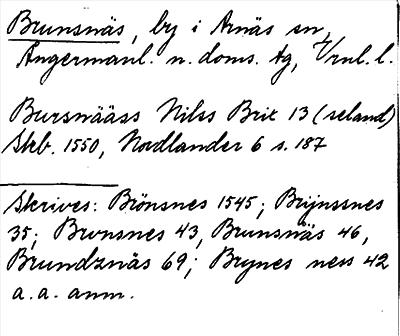 Brunsnäs, by i Arnäs sn,
Ångermanl. n. doms. tg, Vrnl. l.
Bursnääss Nilss Brit 13 (seland)
Skb. 1550, Nordlander 6 s. 187
Skrives: Brönsnes 1545; Brijnssnes
35; Brvnsnes 43, Brunsnäs 46,
Brundznäs 69; Brynes ness 42
a. a. anm.